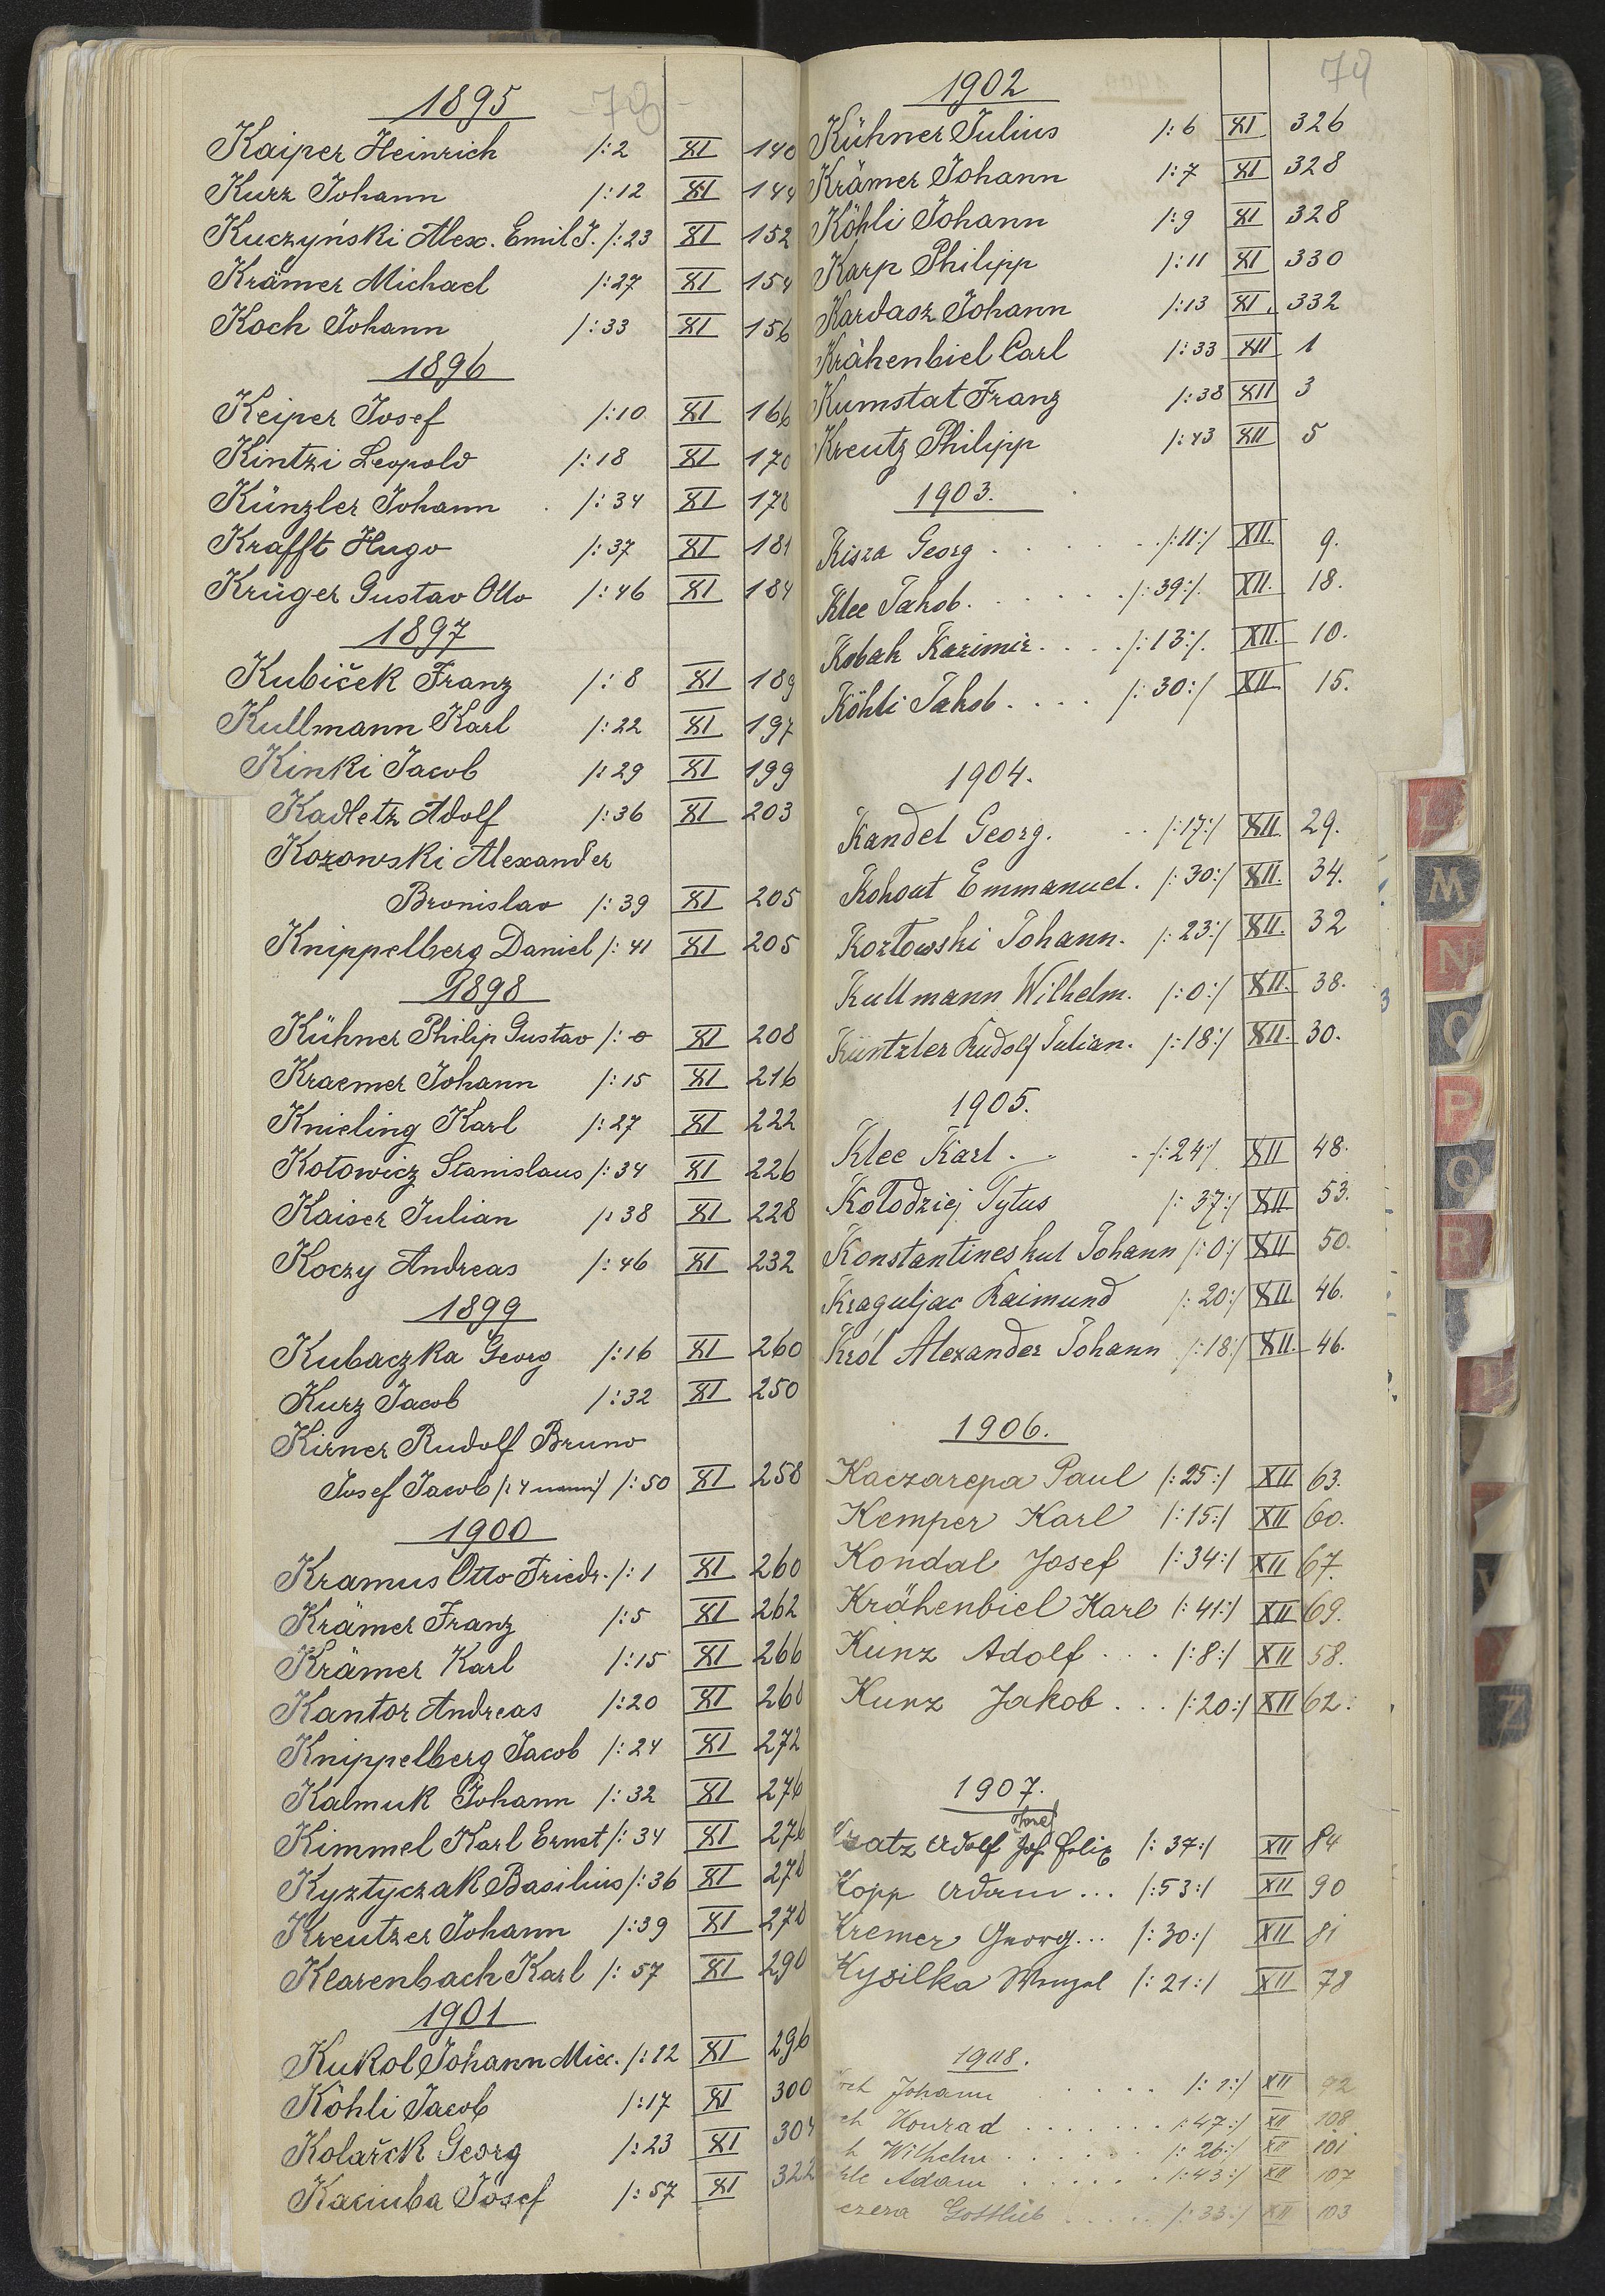 78
1895
Kaiper Heinrich /:2 XI 140
Kurz Johann /:12 XI 144
Kuczyński Alex. Emil J. /:23 XI 152
Krämer Michael /:27 XI 154
Koch Johann /:33 XI 156
1896
Keiper Josef /:10 XI 166
Kintzi Leopold /:18 XI 170
Künzler Johann /:34 XI 178
Krafft Hugo /:37 XI 181
Krüger Gustav Otto /:46 XI 184
1897
Kubiček Franz /:8 XI 189
Kullmann Karl /:22 XI 197
Kinki Jacob /:29 XI 199
Kadletz Adolf /:36 XI 203
Kozowski Alexander
Bronislav /:39 XI 205
Knippelberg Daniel /:41 XI 205
1898
Kühner Philip Gustav /:0 XI 208
Kraemer Johann /:15 XI 216
Knieling Karl /:27 XI 222
Kotowicz Stanislaus /:34 XI 226
Kaiser Julian /:38 XI 228
Koczy Andreas /:46 XI 232
1899
Kubaczka Georg /:16 XI 260
Kurz Jacob /:32 XI 250
Kirner Rudolf Bruno
Josef Jacob /:4 nami/ /:50 XI 258
1900
Kramus Otto Friedr. /:1 XI 260
Krämer Franz /:5 XI 262
Krämer Karl /:15 XI 266
Kantor Andreas /:20 XI 268
Knippelberg Jacob /:24 XI 272
Kalmuk Johann /:32 XI 276
Kimmel Karl Ernst /:34 XI 276
Kyztyczak Basilius /:36 XI 278
Kreutzer Johann /:39 XI 278
Klarenbach Karl /:57 XI 290
1901
Kukol Johann Mic. /:12 XI 296
Köhli Jacob /:17 XI 300
Kolařck Georg /:23 XI 304
Kaciuba Josef /:57 XI 322
79
1902
Kühner Julius /:6 XI 326
Krämer Johann /:7 XI 328
Köhli Johann /:9 XI 328
Karp Philipp /:11 XI 330
Kardasz Johann /:13 XI. 332
Krähenbiel Carl /:33 XII 1
Kumstat Franz /:38 XII 3
Kreutz Philipp /:43 XII 5
1903.
Kisza Georg . . . . . . /:11:/ XII. 9.
Klee Jakob. . . . . . /:39:/. XII. 18.
Kobak Kazimir. . . . /:13:/. XII. 10.
Köhli Jakob . . . . /:30:/ XII. 15.
1904.
Kandel Georg. . . /:17:/ XII. 29.
Kohout Emmanuel. /:30:/ XII. 34.
Kozłowski Johann. /:23:/ XII. 32
Kullmann Wilhelm. /:0:/ XII. 38.
Küntzler Rudolf Julian. /:18:/ XII. 30.
1905.
Klee Karl . . . /:24:/ XII 48.
Kołodziej Tytus /:37:/ XII 53.
Konstantineskul Johann /:0:/ XII 50.
Kraguljac Raimund /:20:/ XII. 46.
Król Alexander Johann /:18:/ XII. 46.
1906.
Kaczarepa Paul /:25:/ XII 63.
Kemper Karl /:15:/ XII 60.
Kondal Josef /:34:/ XII 67.
Krähenbiel Karl /:41:/ XII 69.
Kunz Adolf . . . /:8:/ XII 58.
Kunz Jakob . . . /:20:/ XII 62.
1907.
Kratz Adolf Jos. Felix /:37:/ XII 84
Kopp Adam ... /:53:/ XII 90
Kremer Georg... /:30:/ XII 81
Kysilka Wenzel /:21:/ XII 78
1908.
Johann . . . . . /:1:/ XII 92
Konrad . . . . . . /:47:/ XII 108
Wilhelm . . . . . /:26:/ XII 101
Adam . . . . . /:43:/ XII 107
Gottlieb . . . . . /:33:/ XII 103
L
M
N
O
P
Q
R
Z